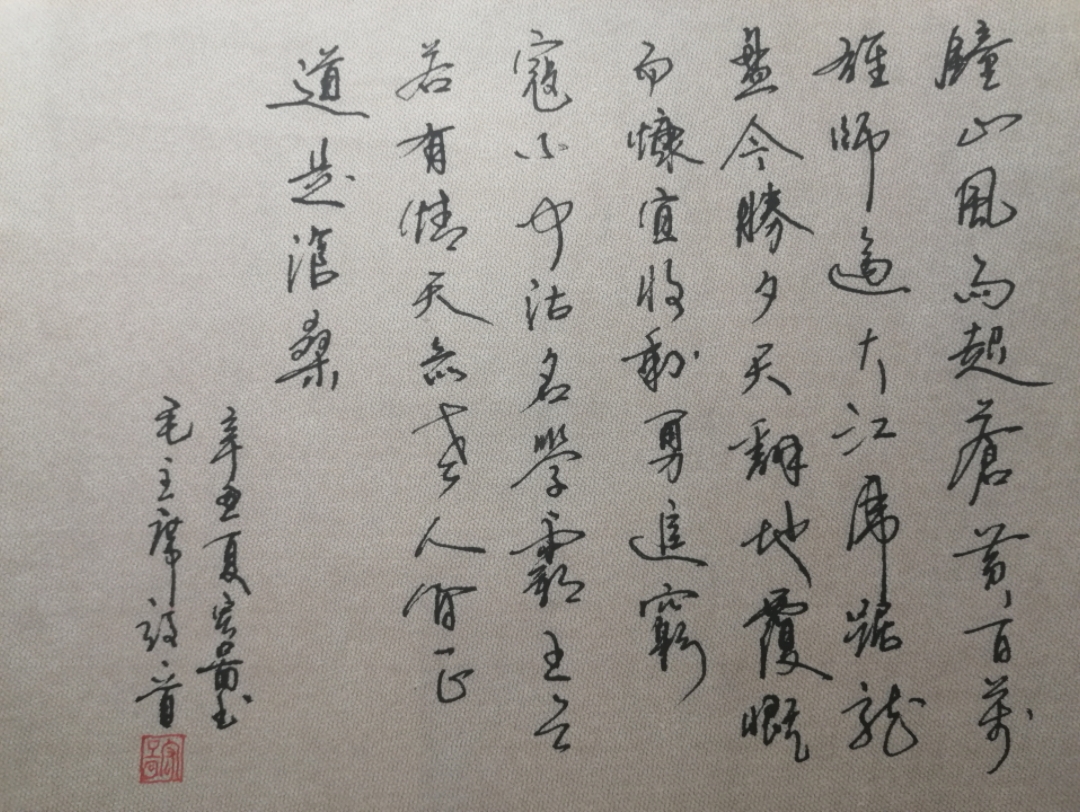 鐘山風雨起蒼黃百萬
雄師過大江虎踞龍
盤今勝夕天翻地覆慨
而慷宜將剩勇追窮
寇不可沽名學霸王天
若有情天亦老人間正
道是滄桑
辛丑夏
毛主席詩一首